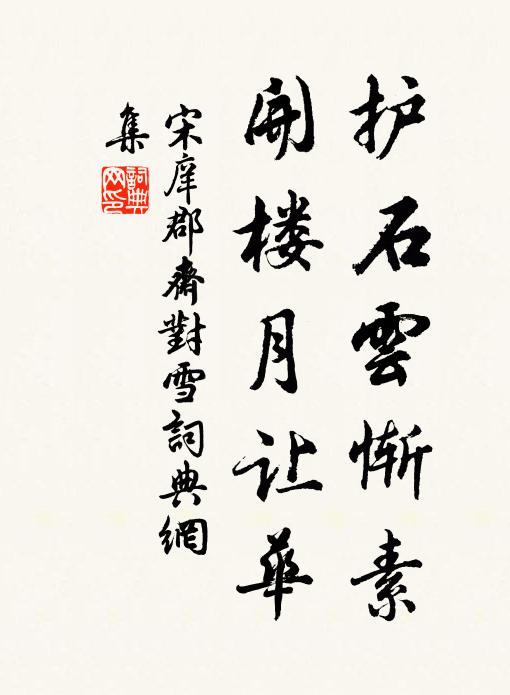 护石雲惭素
開楼月让華
宋庠郡齋對雪詞典網
集
詞典
网印